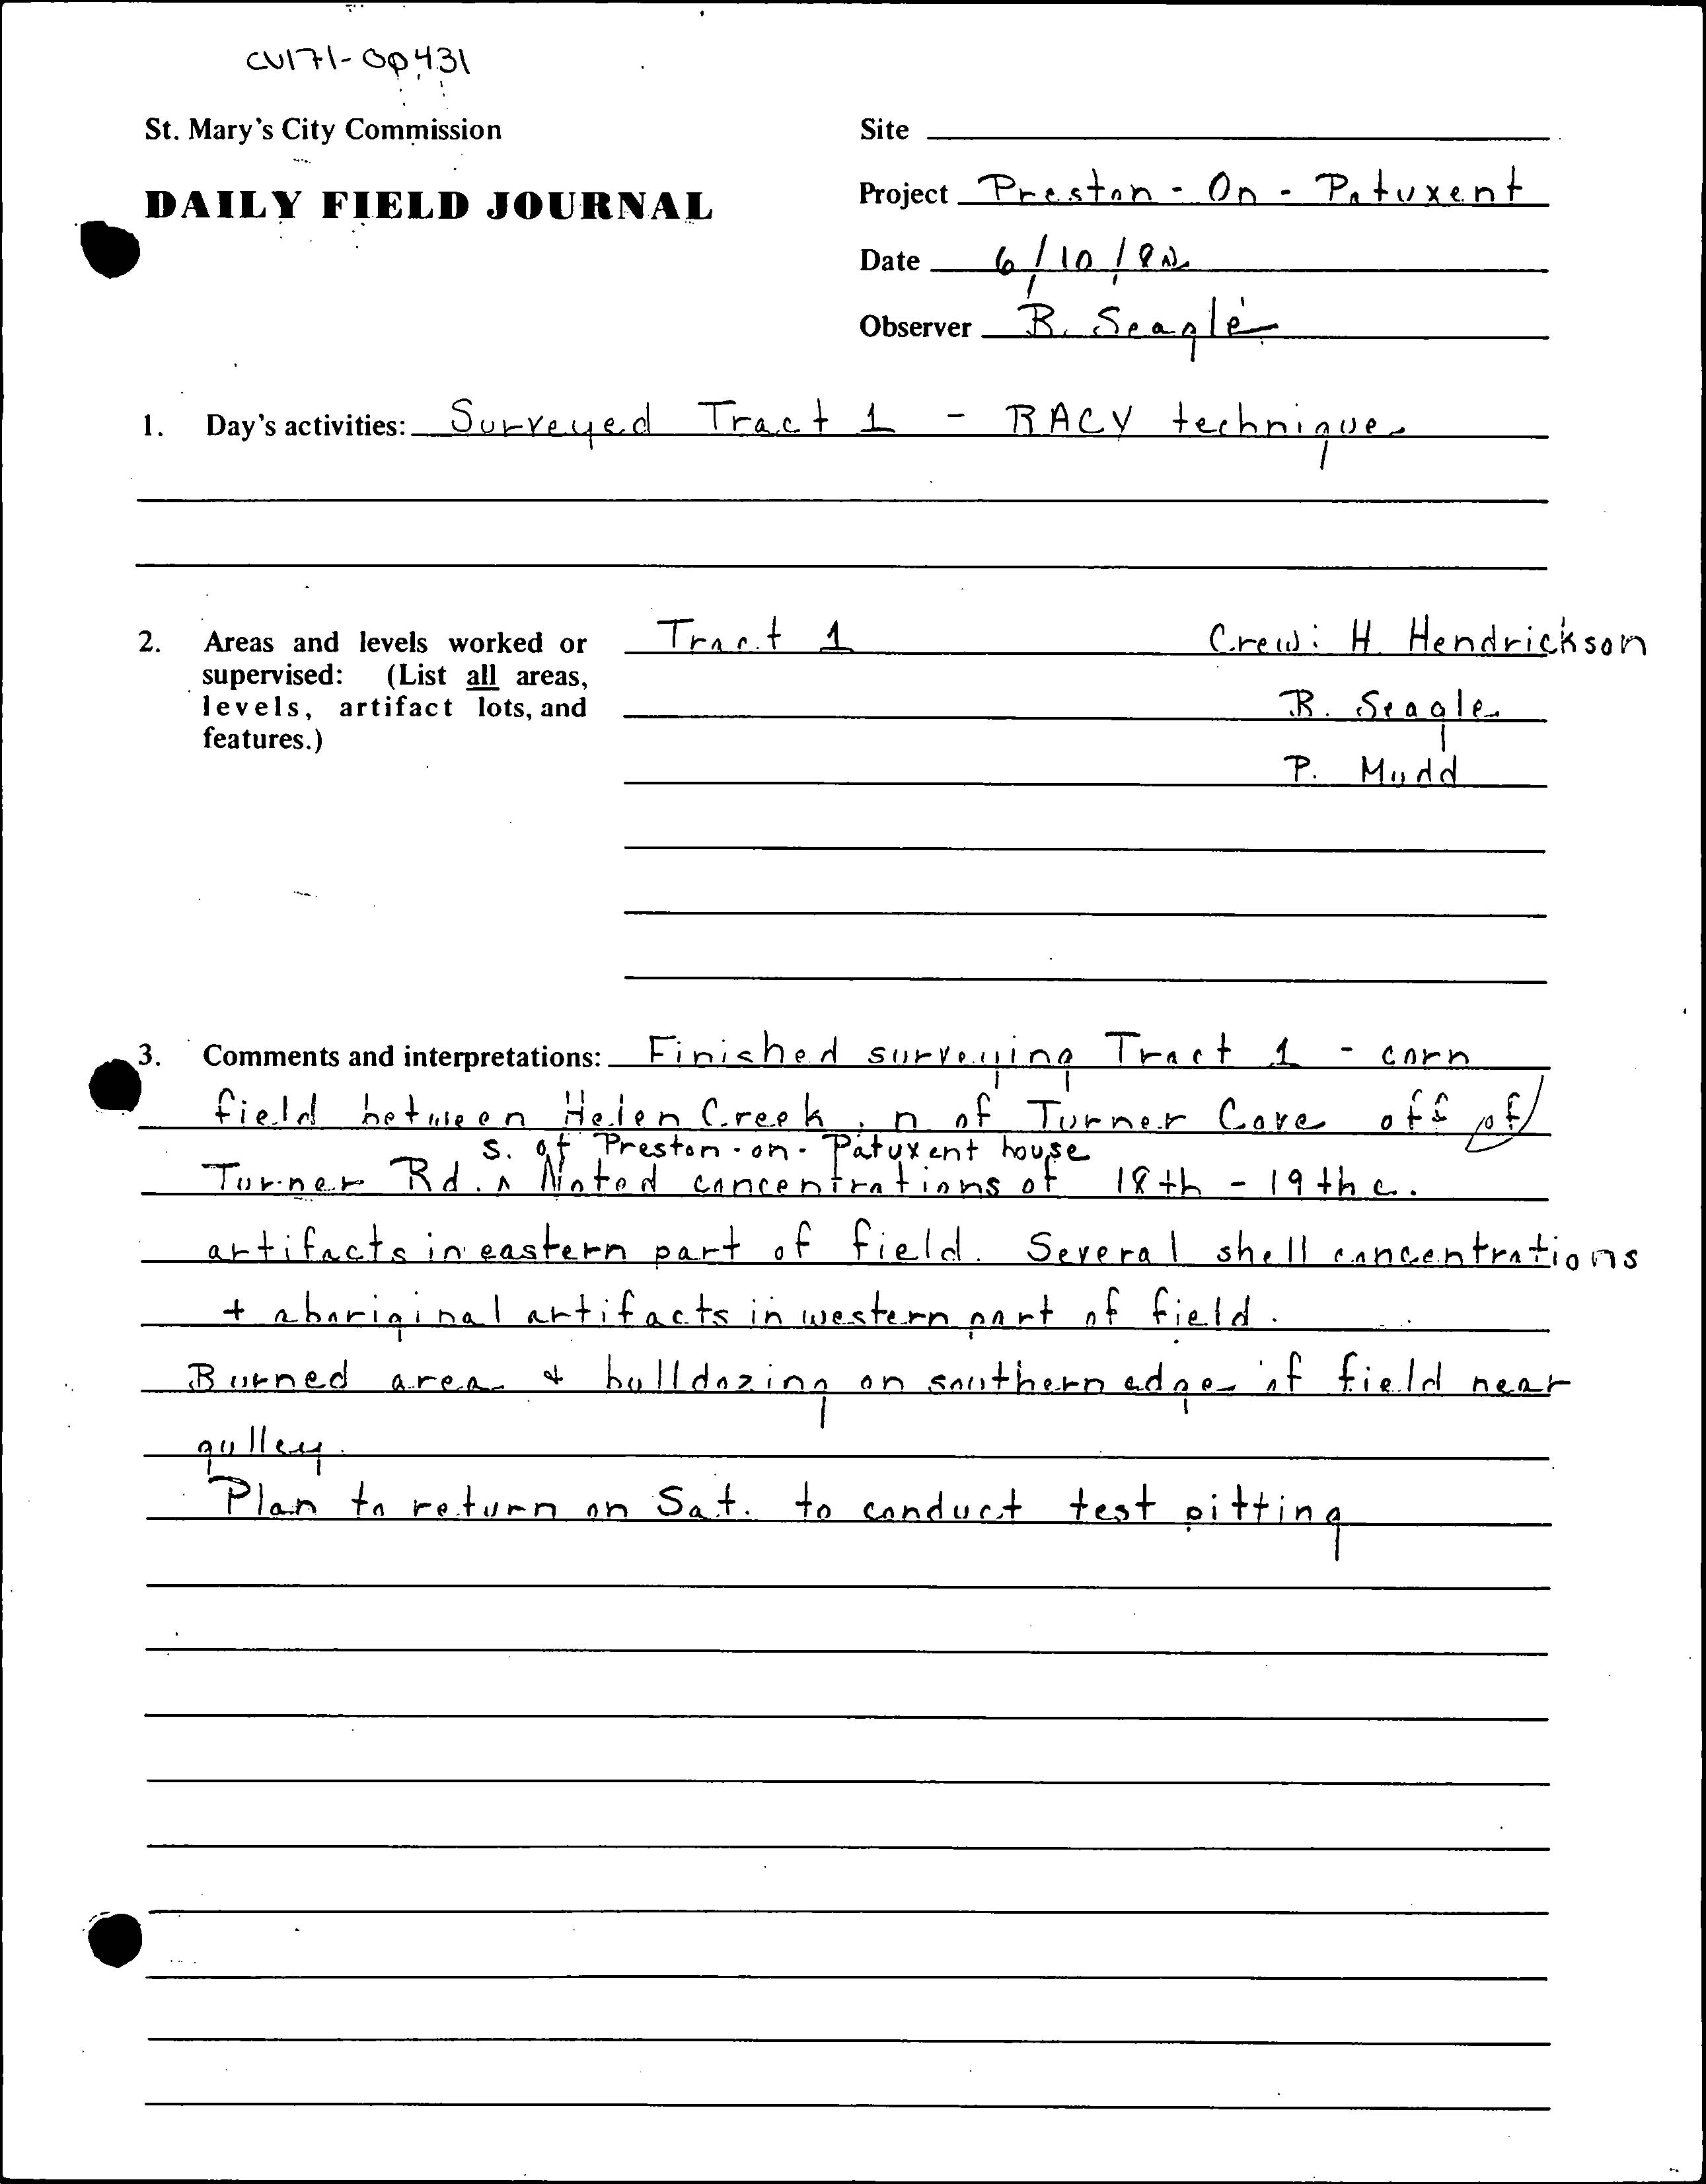 CV171-0p431
St. Mary's City Commission
DAILY FIELD JOURNAL
Site
Project Preston - On - Patuxent
Date 6/10/82
Observer R. Seagle
1. Day's activities: Surveyed Tract 1 - RACV technique
2. Areas and levels worked or supervised: (List all areas, levels, artifact lots, and features.)
Tract 1 Crew: H Hendrickson
R. Seagle
P. Mudd
3. Comments and interpretations: Finished surveying Tract 1 - corn
field between Helen Creek, n of Turner Cove off of
s. of Preston-on-Patuxent house
Turner Rd. ^ Noted concentrations of 18th - 19th c.
artifacts in eastern part of field. Several shell concentrations
+ aboriginal artifacts in western part of field.
Burned area + bulldozing on southern edge of field near
gulley.
Plan to return on Sat. to conduct test pitting